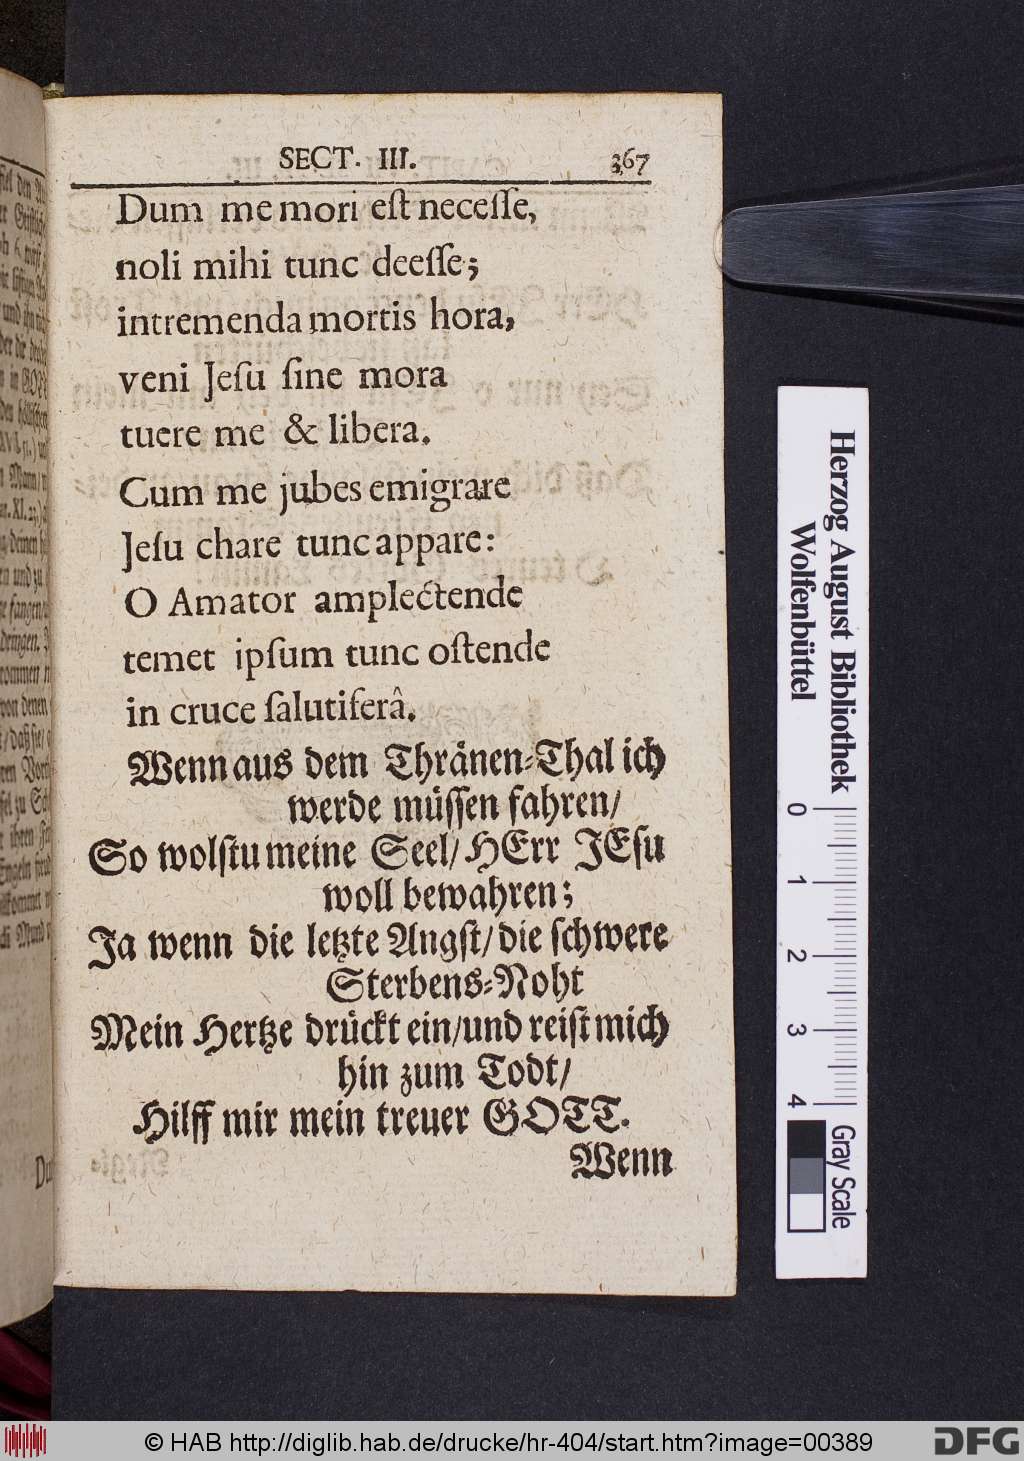 SECT. III. 367
Dum me mori eſt neceſſe,
noli mihi tunc deeſſe;
intremenda mortis hora,
veni Jeſu ſine mora
tuere me & libera.
Cum me jubes emigrare
Jeſu chare tunc appare:
O Amator amplectende
temet ipſum tunc oſtende
in cruce ſalutiferâ.
Wenn aus dem Thränen-Thal ich
werde müſſen fahren/
So wolſtu meine Seel/ HErr JEſu
woll bewahren;
Ja wenn die letzte Angſt/ die ſchwere
Sterbens-Noht
Mein Hertze drückt ein/und reiſt mich
hin zum Todt/
Hilff mir mein treuer GOTT.
Wenn
Herzog August Bibliothek
Wolfenbüttel
0 1 2 3 4
Gray Scale
© HAB http://diglib.hab.de/drucke/hr-404/start.htm?image=00389
DFG